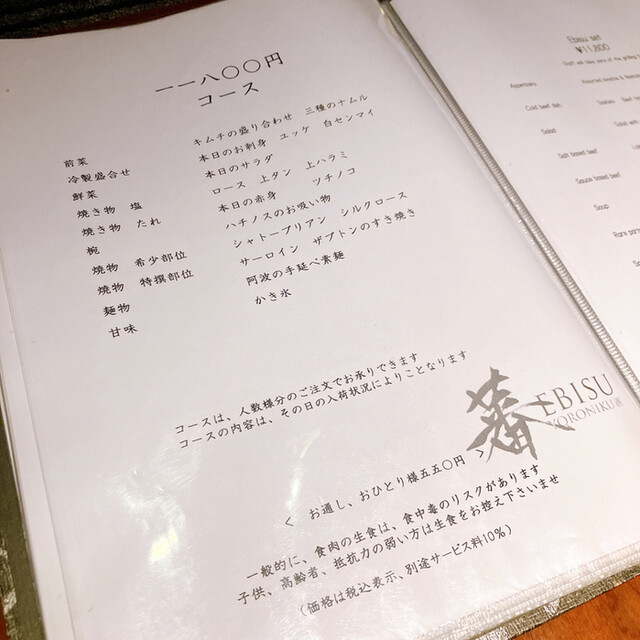 一一八〇〇円
コース
前菜 キムチの盛り合わせ 三種のナムル
冷製盛合せ 本日のお刺身 ユッケ 白センマイ
鮮菜 本日のサラダ
焼き物 塩 ロース 上タン 上ハラミ
焼き物 たれ 本日の赤身 ツチノコ
椀 ハチノスのお吸い物
焼物 希少部位 シャトーブリアン シルクロース
焼物 特撰部位 サーロイン ザブトンのすき焼き
麺物 阿波の手延べ素麺
甘味 かき氷
コースは、人数様分のご注文でお承りできます
コースの内容は、その日の入荷状況によりことなります
蕃 EBISU
YORONIKU
< お通し、おひとり様五五〇円 >
一般的に、食肉の生食は、食中毒のリスクがあります
子供、高齢者、抵抗力の弱い方は生食をお控え下さいませ
（価格は税込表示、別途サービス料10%）
Ebisu set
¥11,800
Appetizers
Cold beef dish
Salad
Salt based beef
Sauce based beef
Soup
Rare